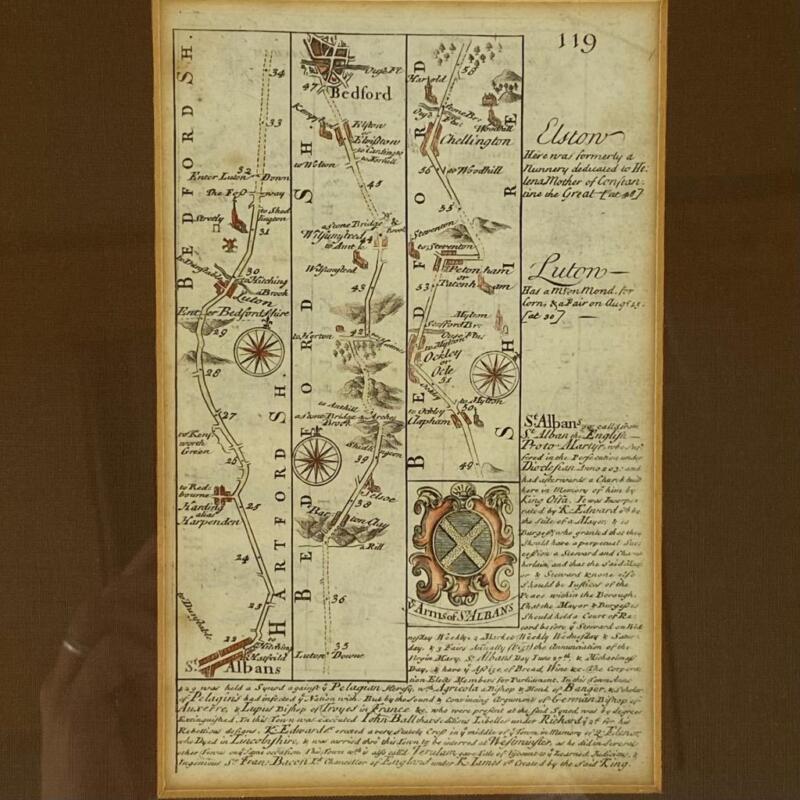 119
BEDFORD SH.
34
33
32
Enter Luton Down
The Foss way
Streetly
31
30
to Hitching
a Brook
Luton
Enter Bedfordshire
29
28
27
26
25
Harding
alias
Harpenden
24
23
22
to Dunstable
Hatfeild
St. Albans
HARTFORD SH.
BEDFORD SH.
47
Bedford
Elstow
or
Elvistow
to Wilton
45
a Stone Bridge & Brook
Wilshamsted
44
Wilshamsted
43
42
to Horton
to Anthill
a Stone Bridge
Brook
39
Silsoe
38
Barton Clay
a Rill
36
35
Luton Downs
BEDFORD SHIRE
Harold
Stone Br.
Woodhill
Chellington
56
to Woodhill
55
Steventon
to Steventon
Petonham
or
Tutenham
53
Mylton
Stafford Br.
to Mylton
Ockley
or
Ocle
51
to Mylton
50
to Ockly
Clapham
49
Elstow
Here was formerly a
Nunnery dedicated to He-
lena Mother of Constan-
tine the Great [at 48]
Luton
Has a M. on Mond. for
Corn, & a Fair on Augst. 25.
[at 30]
St. Albans so call'd from
St. Alban the English
Proto-Martyr, who suf-
fered in the Persecution under
Dioclesian Anno 203: and
had afterwards a Church built
here in Memory of him by
King Offa. It was Incorpo-
rated by K. Edward 6th. by
the stile of a Mayor, & 10
Burgesses who granted that they
should have a perpetual Suc-
cession a Steward and Cham-
berlain, and that the said May-
or & Steward & none else
should be Iustices of the
Peace within the Borough.
That the Mayor & Burgesses
should hold a Court of Re-
cord before ye. Steward on Wed-
nesday Weekly. 2 Markets Weekly Wednesday & Satur-
day. & 3 Fairs Anually (Vizt.) the Annunciation of the
Virgin Mary. St. Albans Day Iune 17th. & Michaelmas
Day, & have ye. Assize of Bread, Wine &c. The Corpora-
tion Elects Members for Parliament. In this Town Anno
429 was held a Synod against ye. Pelagian Heresy, wth. Agricola a Bishop & Monk of Bangor, & Scholar
of Pelagius had infected ye. Nation with. But by the sound & Convincing Arguments of German Bishop of
Auxerre, & Lupus Bishop of Troyes in France &c. who were present at the said Synod, was by degrees
Extinguished. In this Town was executed Iohn Ball that seditious Libeller under Richard ye. 2d. for his
Rebellious designs. K. Edward 1st. erected a very stately Cross in ye. middle of ye. Town, in Memory of Q. Elenor,
who Dyed in Lincolnshire, & was carried thro' this Town to be interred at Westminster, as he did in several
other Towns on ye. same occasion. This Town wth. ye. also call'd Verulam gave title of Viscount to ye. Learned, Judicious, &
Ingenious Sr. Frans. Bacon Ld. Chancellor of England under K. Iames 1st. Created by the said King.
ye. Arms of St. ALBANS